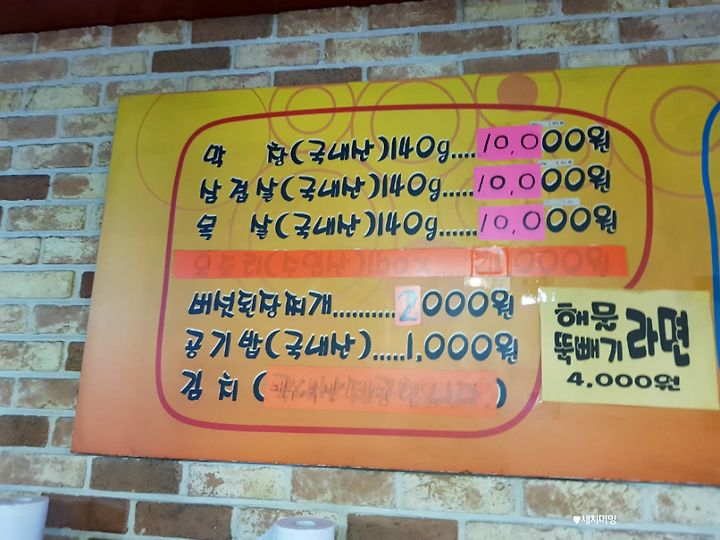 막 창(국내산)140g.....10,000원
삼겹살(국내산)140g.....10,000원
목 살(국내산)140g......10,000원
버섯된장찌개...........2000원
공기밥(국내산).....1,000원
김 치 ( )
해물
뚝빼기 라면
4,000원
♥새치미밍